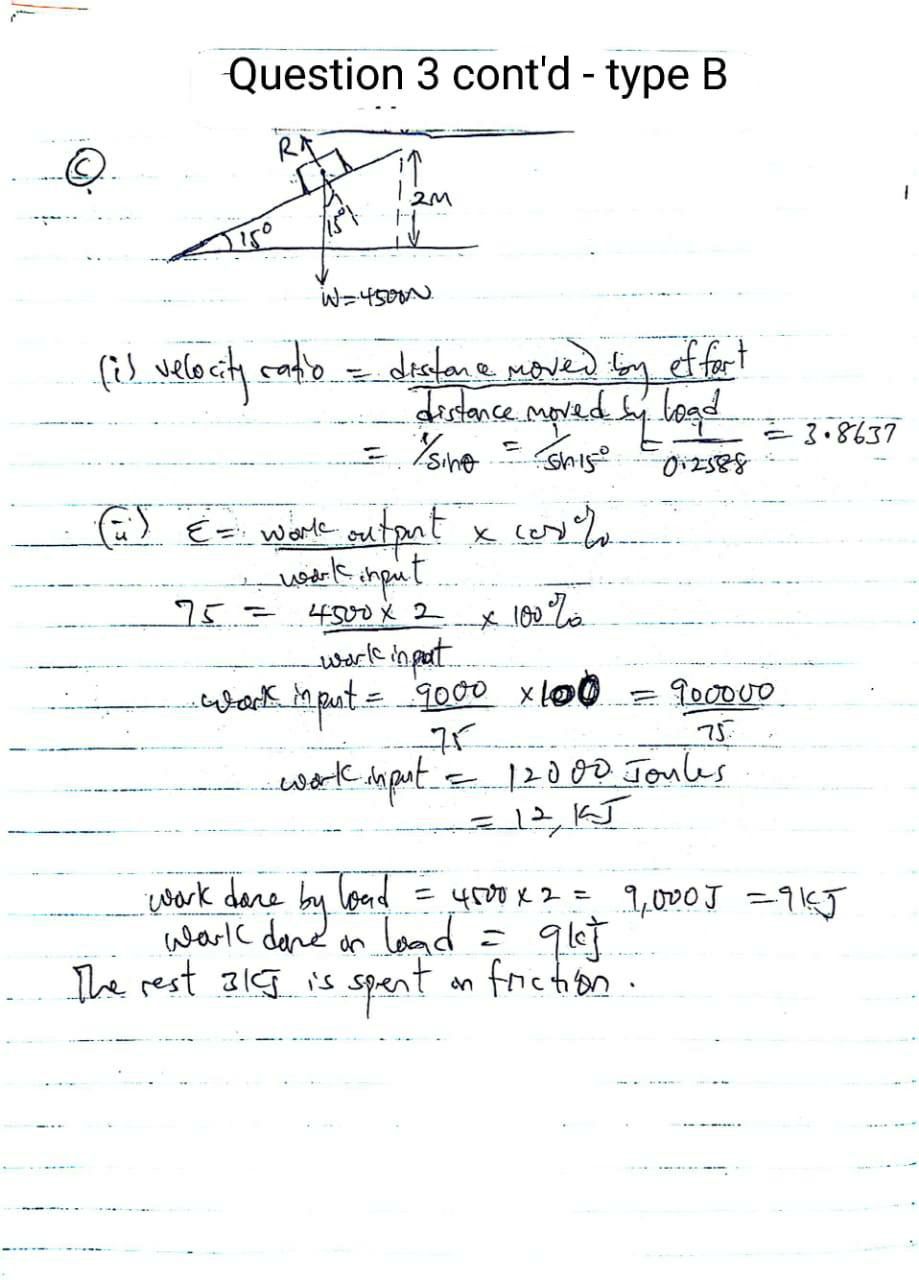 Question 3 cont'd - type B
(C)
R
2M
15°
15°
W = 4500N
(i) velocity ratio = distance moved by effort
distance moved by load
= 1/sinθ = 1/sin15° = 1/0.2588 = 3.8637
(ii) E = work output x 100%
work input
75 = 4500 x 2 x 100%
work input
work input = 9000 x100 = 900000
75 75
work input = 12000 Joules
= 12, kJ
work done by load = 4500 x 2 = 9,000J = 9kJ
Work done on load = 9kJ
The rest 3kJ is spent on friction.